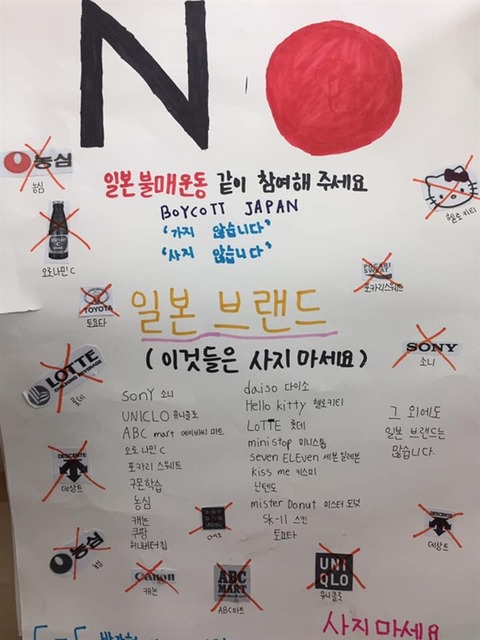 NO
일본불매운동 같이 참여해 주세요
BOYCOTT JAPAN
'가지 않습니다'
'사지 않습니다'
농심
농심
오로나민 C
헬로키티
POCARI SWEAT
포카리스웨트
TOYOTA
토요타
일본 브랜드
(이것들은 사지 마세요)
SONY
소니
LOTTE
롯데
DESCENTE
데상트
sony 소니
UNICLO 유니클로
ABC mart 에이비씨 마트
오로나민 C
포카리 스웨트
구몬학습
농심
캐논
쿠팡
허니버터칩
daiso 다이소
Hello kitty 헬로키티
LoTTE 롯데
ministop 미니스톱
seven ELEven 세븐 일레븐
kiss me 키스미
닌텐도
mister Donut 미스터 도넛
SK-11 스킨
토요타
그 외에도
일본 브랜드는
많습니다.
DESCENTE
데상트
농심
농심
Canon
캐논
ABC MART
ABC마트
UNI QLO
유니클로
사지 마세요